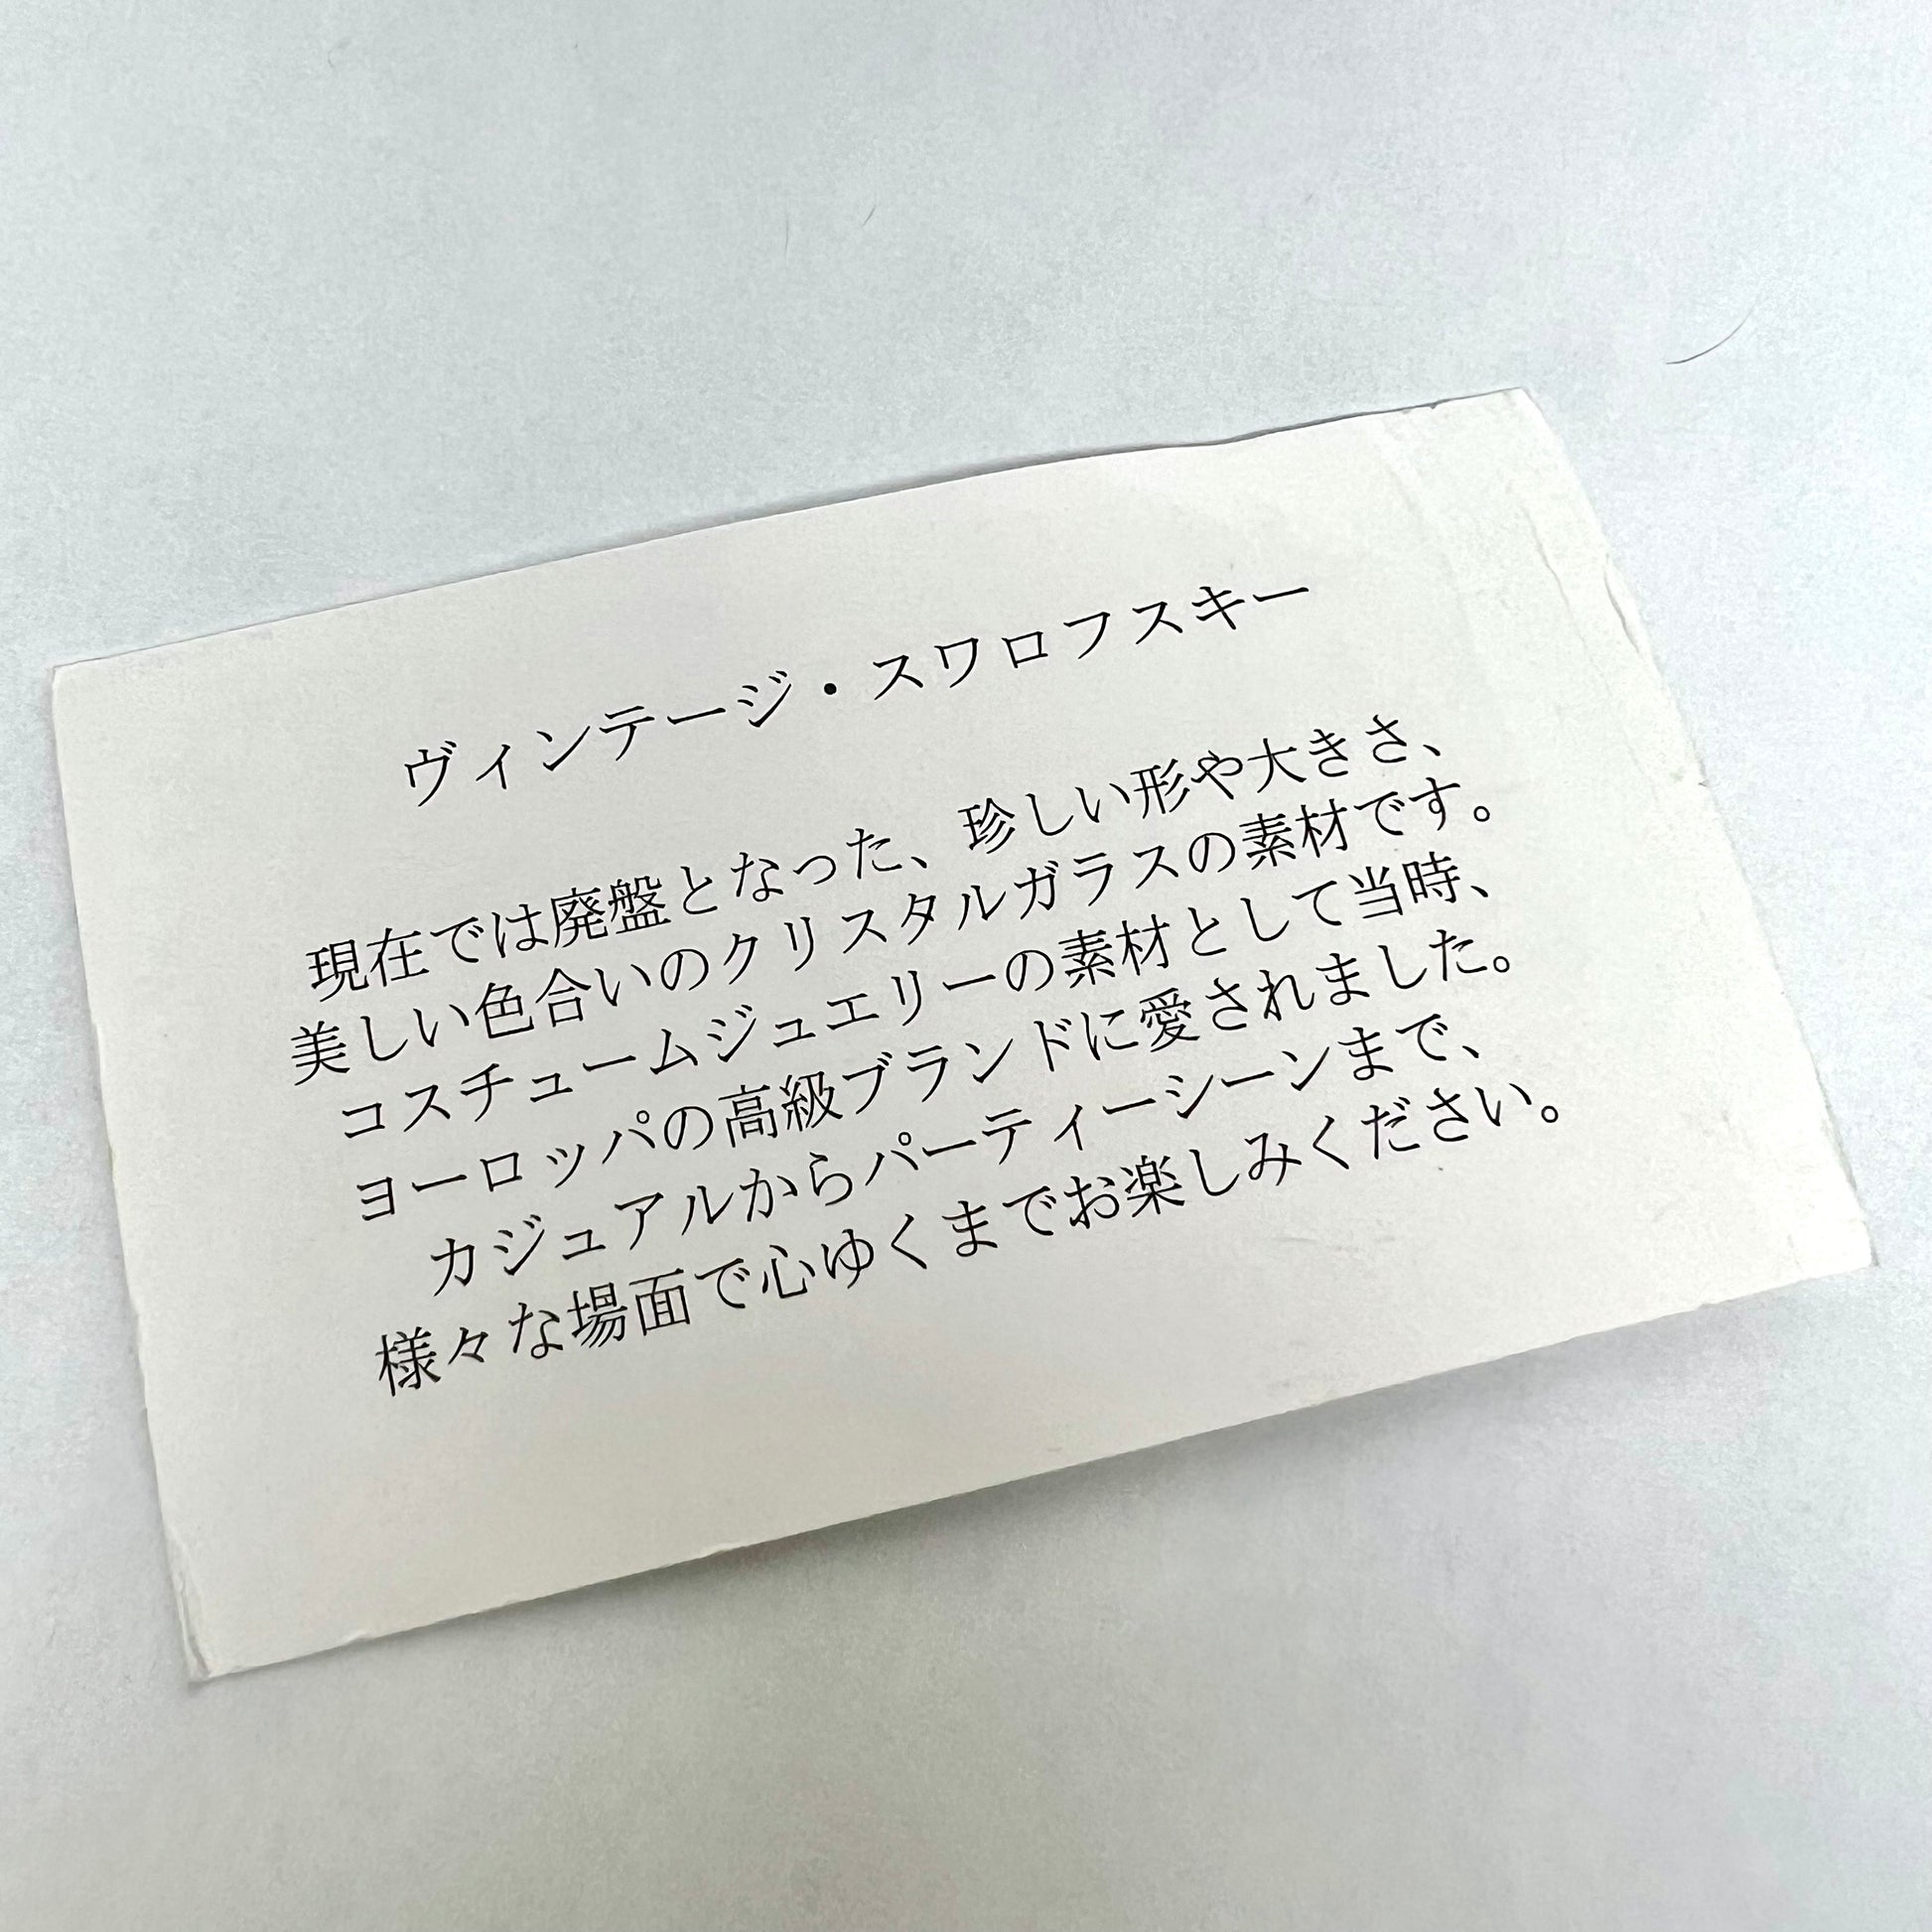 ヴィンテージ・スワロフスキー
現在では廃盤となった、珍しい形や大きさ、
美しい色合いのクリスタルガラスの素材です。
コスチュームジュエリーの素材として当時、
ヨーロッパの高級ブランドに愛されました。
カジュアルからパーティーシーンまで、
様々な場面で心ゆくまでお楽しみください。